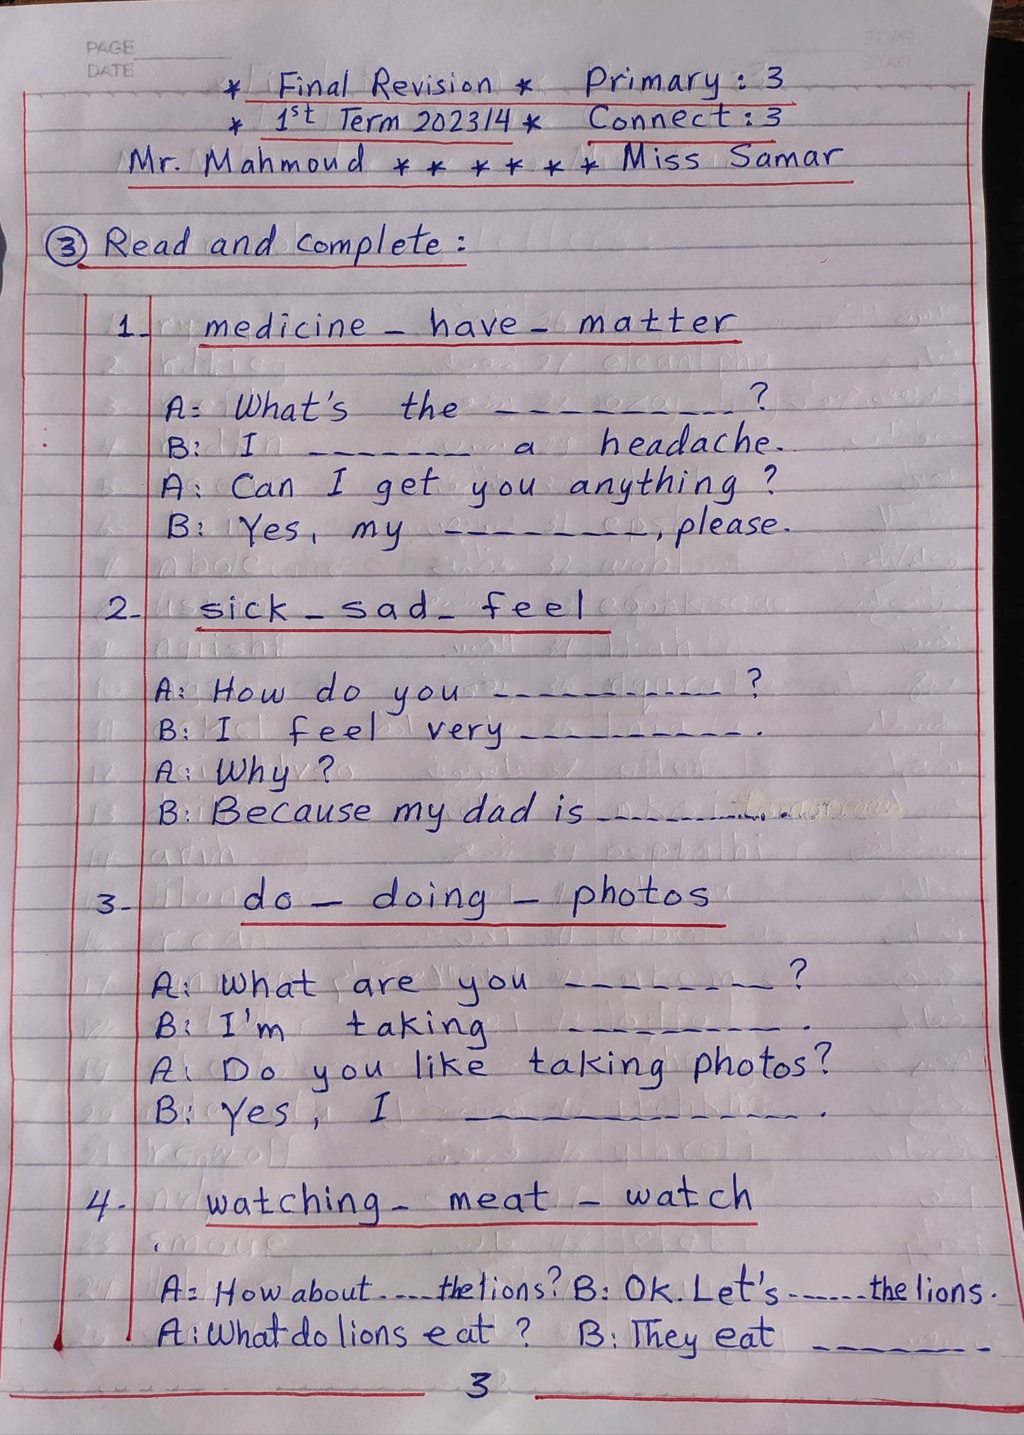 PAGE
DATE
* Final Revision * Primary : 3
* 1st Term 2023/4 * Connect : 3
Mr. Mahmoud * * * * * * Miss Samar
③ Read and complete :
1- medicine - have - matter
A: What's the _ _ _ _ _ _ _ _ _ ?
B: I _ _ _ _ _ _ a headache.
A: Can I get you anything ?
B: Yes, my _ _ _ _ _ _ _ _ , please.
2- sick - sad - feel
A: How do you _ _ _ _ _ _ _ _ _ ?
B: I feel very _ _ _ _ _ _ _ _ _ .
A: Why ?
B: Because my dad is _ _ _ _ _ _ _ _ .
3- do - doing - photos
A: What are you _ _ _ _ _ _ _ _ ?
B: I'm taking _ _ _ _ _ _ _ _ .
A: Do you like taking photos?
B: Yes, I _ _ _ _ _ _ _ _ _ _ _ _ .
4- watching - meat - watch
A: How about ...... the lions? B: Ok. Let's ...... the lions.
A: What do lions eat ? B: They eat _ _ _ _ _ _ .
3